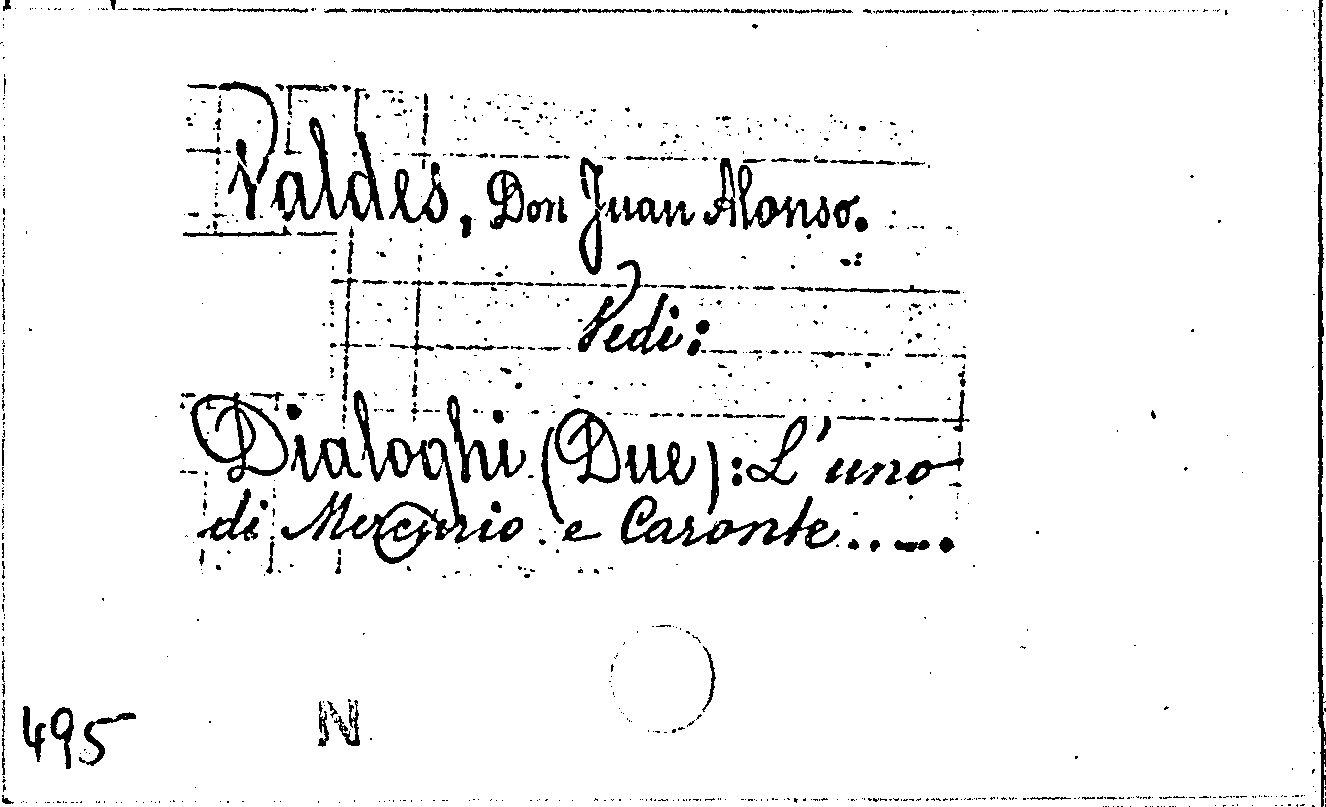 Valdes, Don Juan Alonso.
Vedi:
Dialoghi (Due): L'uno
di Mercurio e Caronte.....
495
N